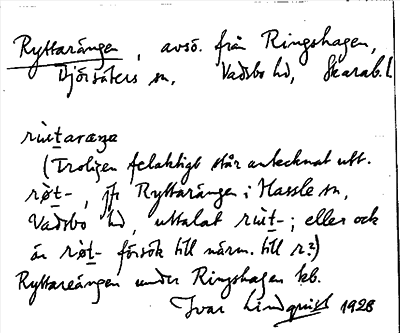 Ryttarängen, avsö. från Ringshagen,
Djörsäters sn, Vadsbo hd, Skarab. l
rùtaræŋa
(Troligen felaktigt står antecknat utt.
røt-, jfr Ryttarängen i Hassle sn,
Vadsbo hd, uttalat rùt-; eller ock
är røt- försök till närm. till r?)
Ryttareängen under Ringshagen kb.
Ivar Lindquist 1928